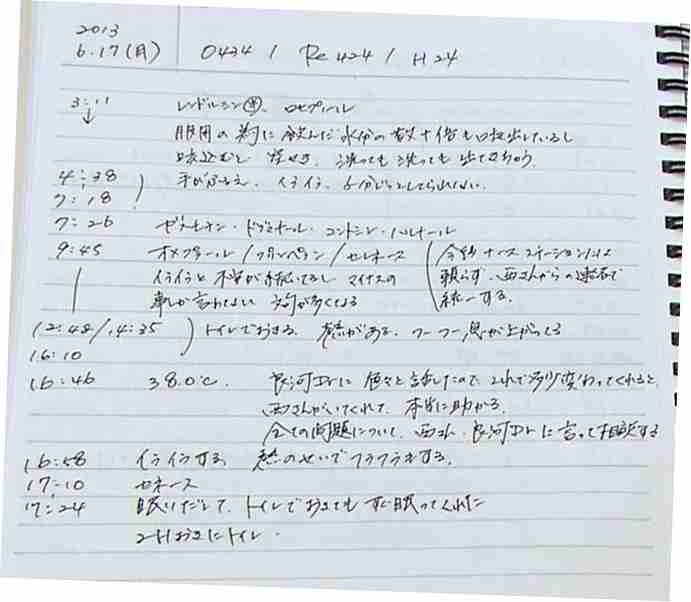 2013
6.17(月) 0434 / Re 424 / H 24
3:11 レンドルミン㊥、ロヒプノール
↓ 服用の為に飲んだ水分の数十倍も口は出しているし
咳込むし 洗っても洗っても出てきちゃう
4:38 手がふるえ、イライラ、6分じっとしてられない。
7:18
7:26 ・コントミン・
9:45 オメプラール / / セレネース (今後ナースステーションには
イライラと不安が続いてるし マイナスの 頼らず、西さんからの連絡で
事しか言わない 方が多くなる 統一する。
12:48 / 14:35 ) トイレでおきる。熱がある。フーフー息が上がってる
16:10
16:46 38.0℃. 良河Drに色々と話したので、これで多少変わってくれると、
西さんがいてくれて、本当に助かる。
全ての問題について、西さん、良河Drに言って相談する
16:58 イライラする 熱のせいでフラフラする。
17:10 セネース
17:24 眠いだして、トイレでおきてもすぐ眠ってくれた
2Hおきにトイレ.